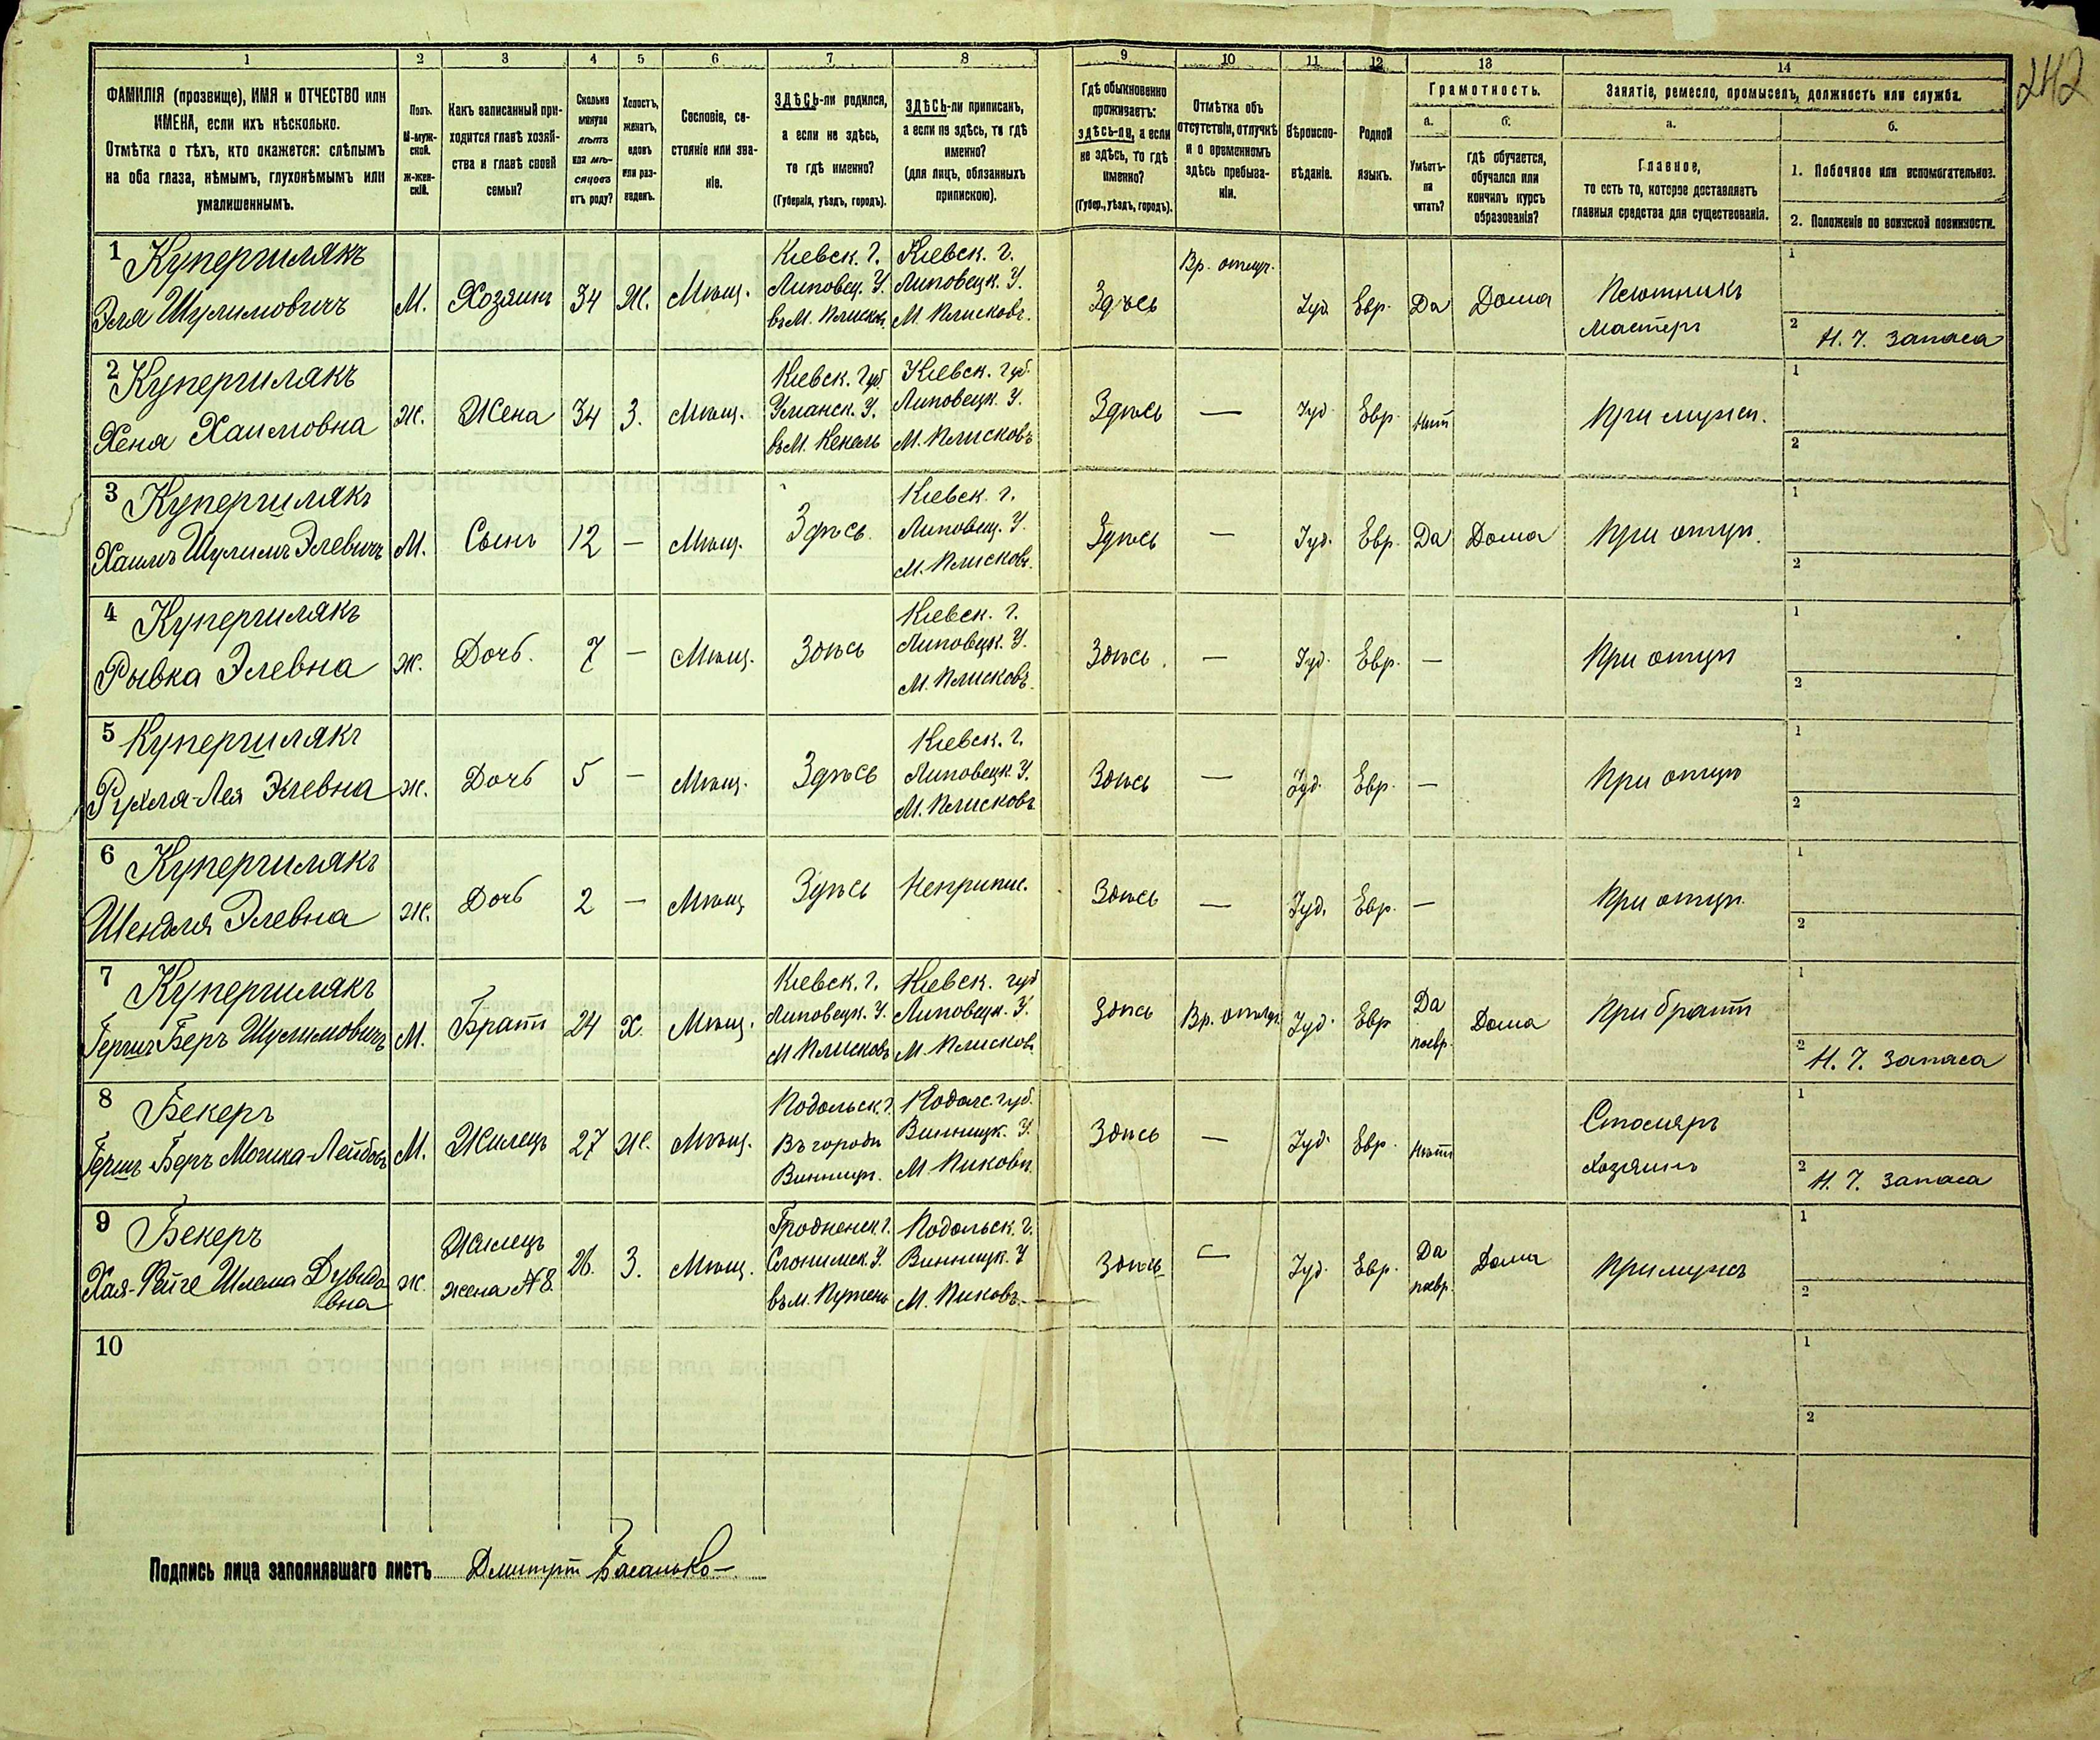 242
1 2 3 4 5 6 7 8 9 10 11 12 13 14
ФАМИЛІЯ (прозвище), ИМЯ и ОТЧЕСТВО или
ИМЕНА, если ихъ нѣсколько.
Отмѣтка о тѣхъ, кто окажется: слѣпымъ
на оба глаза, нѣмымъ, глухонѣмымъ или
умалишеннымъ.
Полъ.
М-муж-
ской.
Ж-жен-
скій.
Какъ записанный при-
ходится главѣ хозяй-
ства и главѣ своей
семьи?
Сколько
минуло
лѣтъ
или мѣ-
сяцевъ
отъ роду?
Холостъ,
женатъ,
вдовъ
или раз-
веденъ.
Сословіе, со-
стояніе или зва-
ніе.
ЗДѢСЬ-ли родился,
а если не здѣсь,
то гдѣ именно?
(Губернія, уѣздъ, городъ).
ЗДѢСЬ-ли приписанъ,
а если не здѣсь, то гдѣ
именно?
(для лицъ, обязанныхъ
припискою).
Гдѣ обыкновенно
проживаетъ:
здѣсь-ли, а если
не здѣсь, то гдѣ
именно?
(Губер., уѣздъ, городъ).
Отмѣтка объ
отсутствіи, отлучкѣ
и о временномъ
здѣсь пребыва-
ніи.
Вѣроиспо-
вѣданіе.
Родной
языкъ.
Грамотность.
а.
Умѣетъ-
ли
читать?
б.
гдѣ обучается,
обучался или
кончилъ курсъ
образованія?
Занятіе, ремесло, промыселъ, должность или служба.
а.
Главное,
то есть то, которое доставляетъ
главныя средства для существованія.
б.
1. Побочное или вспомогательное.
2. Положеніе по воинской повинности.
1 Купершлякъ
Эля Шулимовичъ
М.
Хозяинъ
34
Ж.
Мѣщ.
Кіевск. г.
Липовец. У.
въ М. Плисков
Кіевск. г.
Липовецк. У.
М. Плисковъ.
Здѣсь
Вр. отлуч.
Іуд
Евр.
Да
Дома
Плотникъ
мастеръ
1
2 Н. Ч. Запаса
2 Купершлякъ
Хеня Хаимовна
Ж.
Жена
34
З.
Мѣщ.
Кіевск. Губ.
Уманск. У.
въ М. Кенель
Кіевск. Губ.
Липовецк. У.
М. Плисковъ
Здѣсь
—
Іуд.
Евр.
Нѣт
При мужѣ.
1
2
3 Купершлякъ
Хаимъ Шулимъ Элевичъ
М.
Сынъ
12
—
Мѣщ.
Здѣсь.
Кіевск. г.
Липовец. У.
М. Плисковъ.
Здѣсь
—
Іуд.
Евр.
Да
Дома
При отцѣ.
1
2
4 Купершлякъ
Рывка Элевна
Ж.
Дочь.
7
—
Мѣщ.
Здѣсь
Кіевск. г.
Липовецк. У.
М. Плисковъ.
Здѣсь.
—
Іуд.
Евр.
—
При отцѣ
1
2
5 Купершлякъ
Рухля-Лея Элевна
Ж.
Дочь
5
—
Мѣщ.
Здѣсь
Кіевск. г.
Липовецк. У.
М. Плисковъ
Здѣсь
—
Іуд.
Евр.
—
При отцѣ
1
2
6 Купершлякъ
Шендля Элевна
Ж.
Дочь
2
—
Мѣщ
Здѣсь
Неприпис.
Здѣсь
—
Іуд.
Евр.
—
При отцѣ.
1
2
7 Купершлякъ
Гершъ Беръ Шулимовичъ
М.
Братъ
24
Х.
Мѣщ.
Кіевск. г.
Липовецк. У.
М Плисковъ
Кіевск. губ
Липовецк. У.
М. Плисковъ
Здѣсь
Вр. отлуч.
Іуд.
Евр
Да
поевр.
Дома
При братѣ
1
2 Н. Ч. Запаса
8 Бекеръ
Гершъ Беръ Мошка-Лейбовъ
М.
Жилецъ
27
Ж.
Мѣщ.
Подольск. г.
Въ городѣ
Винницѣ.
Подолс. губ.
Винницк. У.
М. Пиковъ.
Здѣсь
—
Іуд.
Евр.
Нѣтъ
Столяръ
Хозяинъ
1
2 Н. Ч. Запаса
9 Бекеръ
Хая-Фейге Шлема Дувидо
вна
Ж.
Жилецъ
жена №8.
26.
З.
Мѣщ.
Гродненск. г.
Слонимск. У.
въ м.
Подольск. г.
Винницк. У
М. Пиковъ.
Здѣсь
—
Іуд.
Евр.
Да
поевр.
Дома
При мужѣ
1
2
10
1
2
Подпись лица заполнявшаго листъ Дмитрій